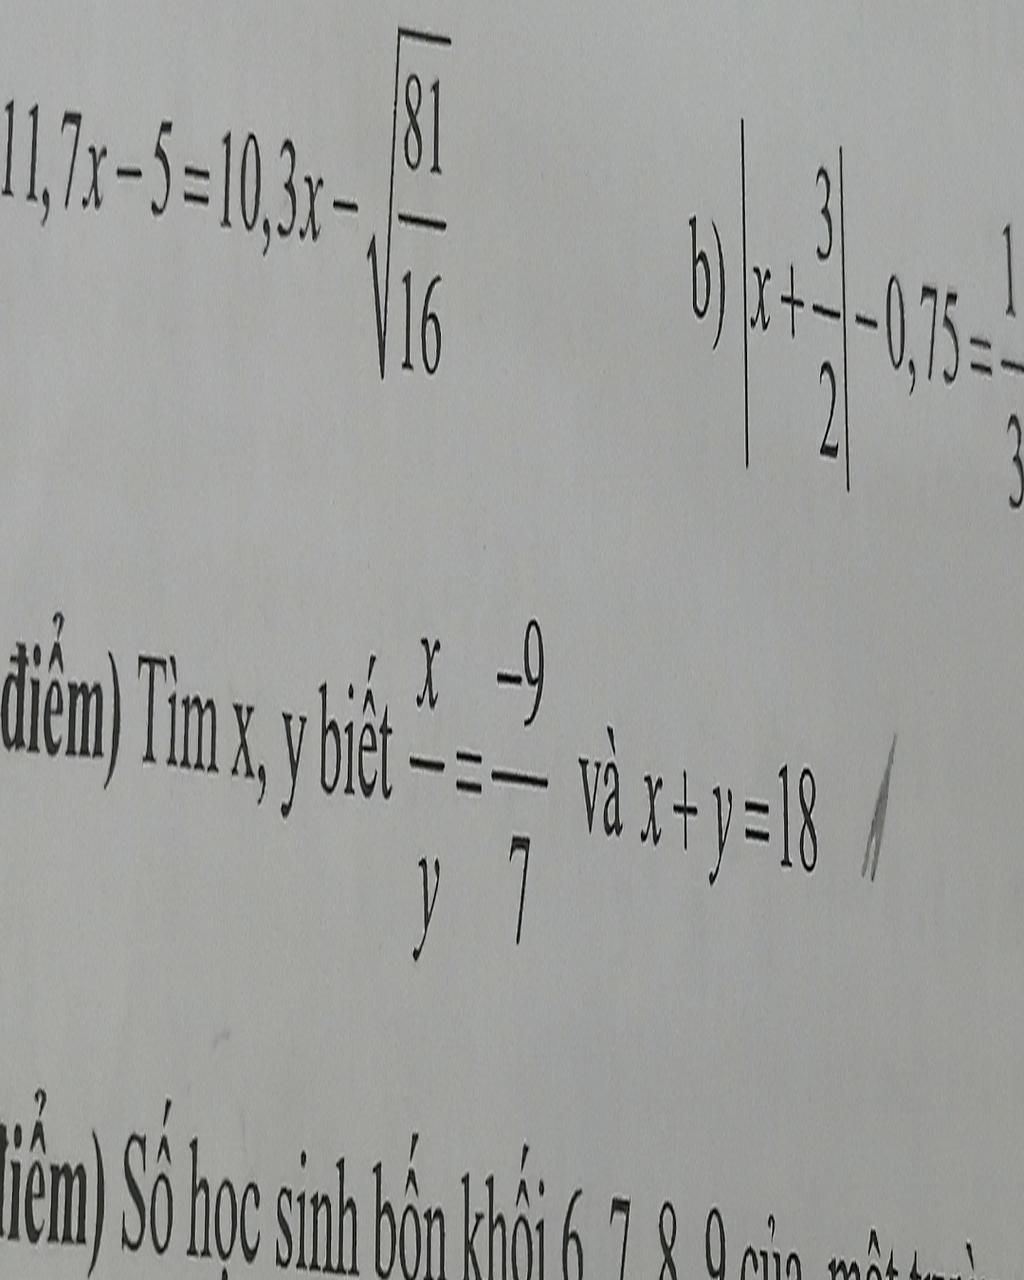 11,7x − 5 = 10,3x − √(81/16)
b) |x + 3/2| − 0,75 = 1/3
điểm) Tìm x, y biết x/y = −9/7 và x + y = 18
điểm) Số học sinh bốn khối 6 7 8 9 của một